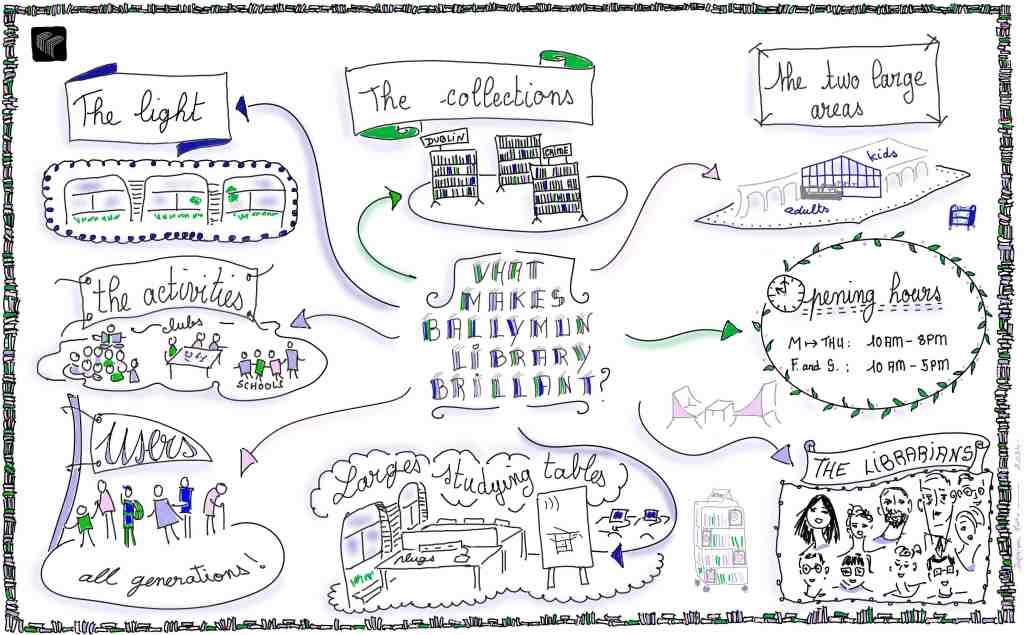 The light
The collections
the two large
areas
DUBLIN
CRIME
kids
adults
the activities
clubs
SCHOOLS
WHAT
MAKES
BALLYMUN
LIBRARY
BRILLANT?
opening hours
M → THU: 10 AM - 8 PM
F. and S.: 10 AM - 5 PM
Users
all generations!
Larges studying tables
plugs
THE LIBRARIANS